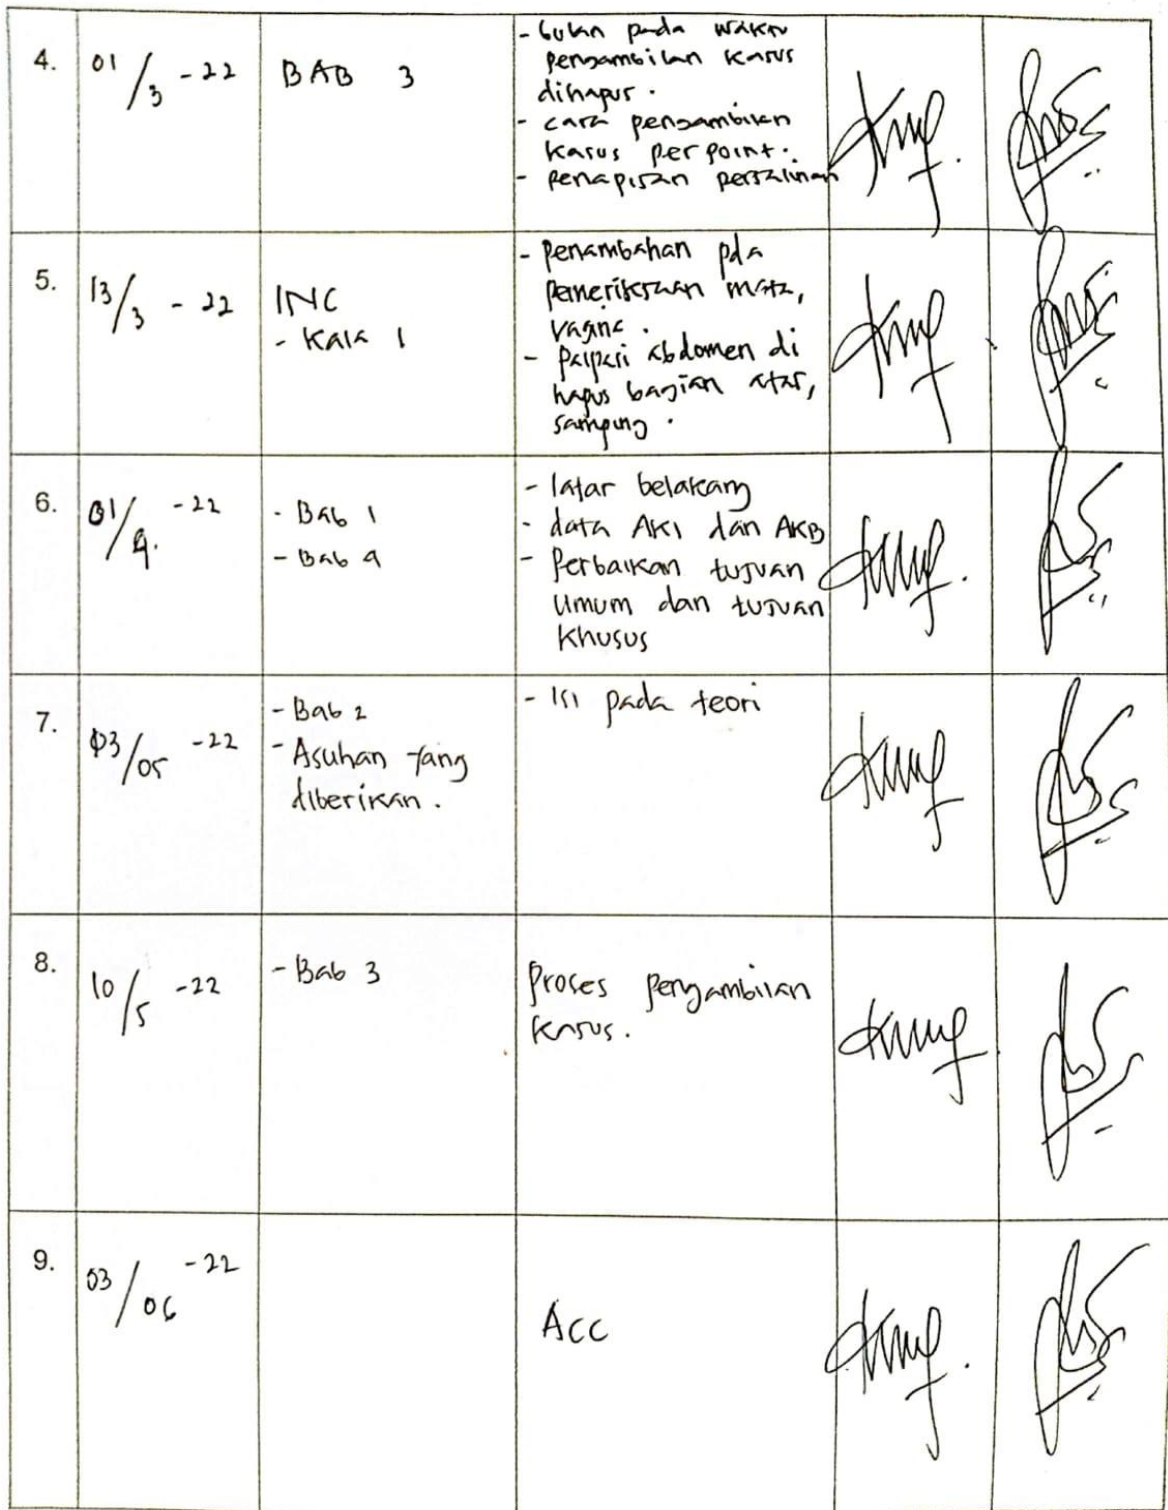 4.
01/3 -22
BAB 3
- bulan pada waktu
pengambilan kasus
dihapus.
- cara pengambilan
kasus per point.
- penapisan persalinan
5.
13/3 - 22
INC
- Kala 1
- Penambahan pda
pemeriksaan mata,
vagina.
- Palpasi abdomen di
hapus bagian atas,
samping.
6.
01/4. -22
- Bab 1
- Bab 4
- latar belakang
- data AKI dan AKB
- Perbaikan tujuan
umum dan tujuan
khusus
7.
03/05 -22
- Bab 2
- Asuhan yang
diberikan.
- Isi pada teori
8.
10/5 -22
- Bab 3
Proses pengambilan
kasus.
9.
03/06 -22
ACC